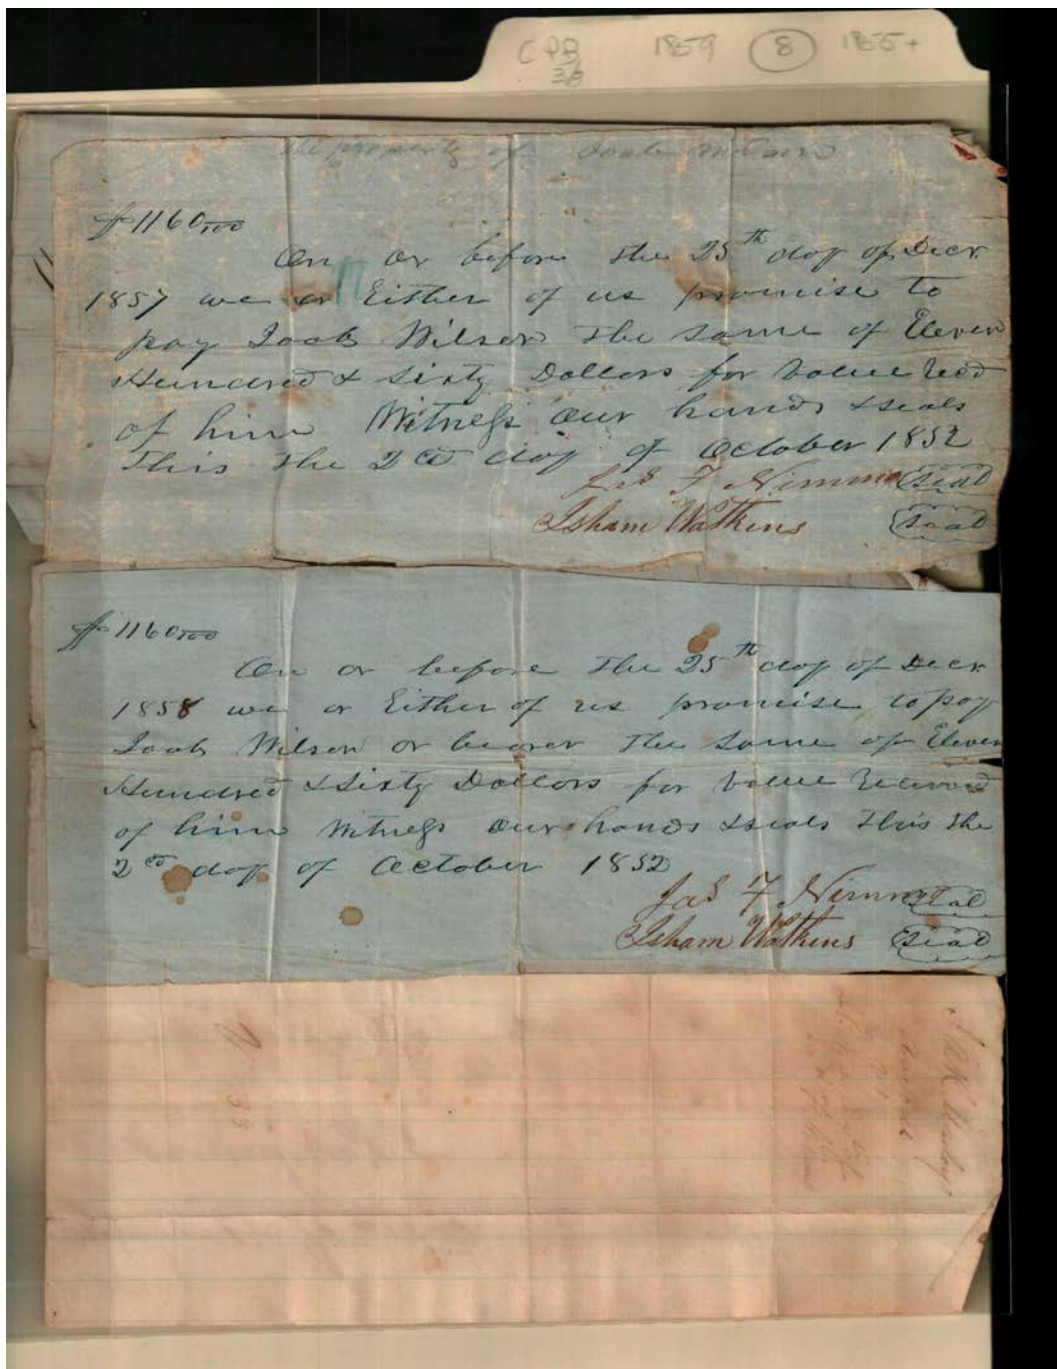 CPB 1859 8 1855+
3/8
the property of Joab Wilson
$1160 00/100
On or before the 25th day of Decr
1857 we or Either of us promise to
pay Joab Wilson the some of Eleven
Hundred & Sixty Dollars for value Recd
of him Witness our hands & seals
This the 2cd day of October 1852
Jas F Nimmo Seal
Isham Watkins Seal
$1160 00/100
On or before the 25th day of Decr
1858 we or Either of us promise to pay
Joab Wilson or bearer the some of Eleven
Hundred & Sixty Dollars for value Received
of him Witness our hands & seals this the
2cd day of October 1852
Jas F Nimmo Seal
Isham Watkins Seal